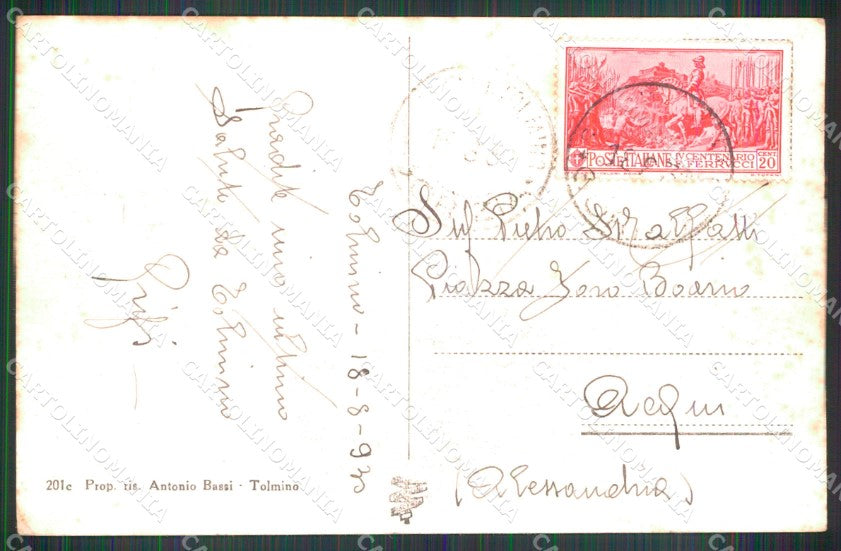 Gradite mio ultimo
Saluto da Tolmino
Gigi
Tolmino - 18-8-930
201c Prop. ris. Antonio Bassi - Tolmino
POSTE ITALIANE
IV CENTENARIO
F. FERRVCCI
CENT
20
Sig Pietro
Piazza Foro Boario
Acqui
(Alessandria)
CARTOLINOMANIA